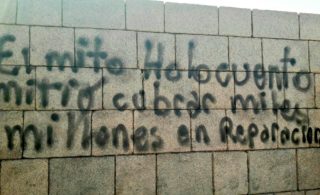 El mito Holocuento
mitió cobrar miles
millones en Reparacion